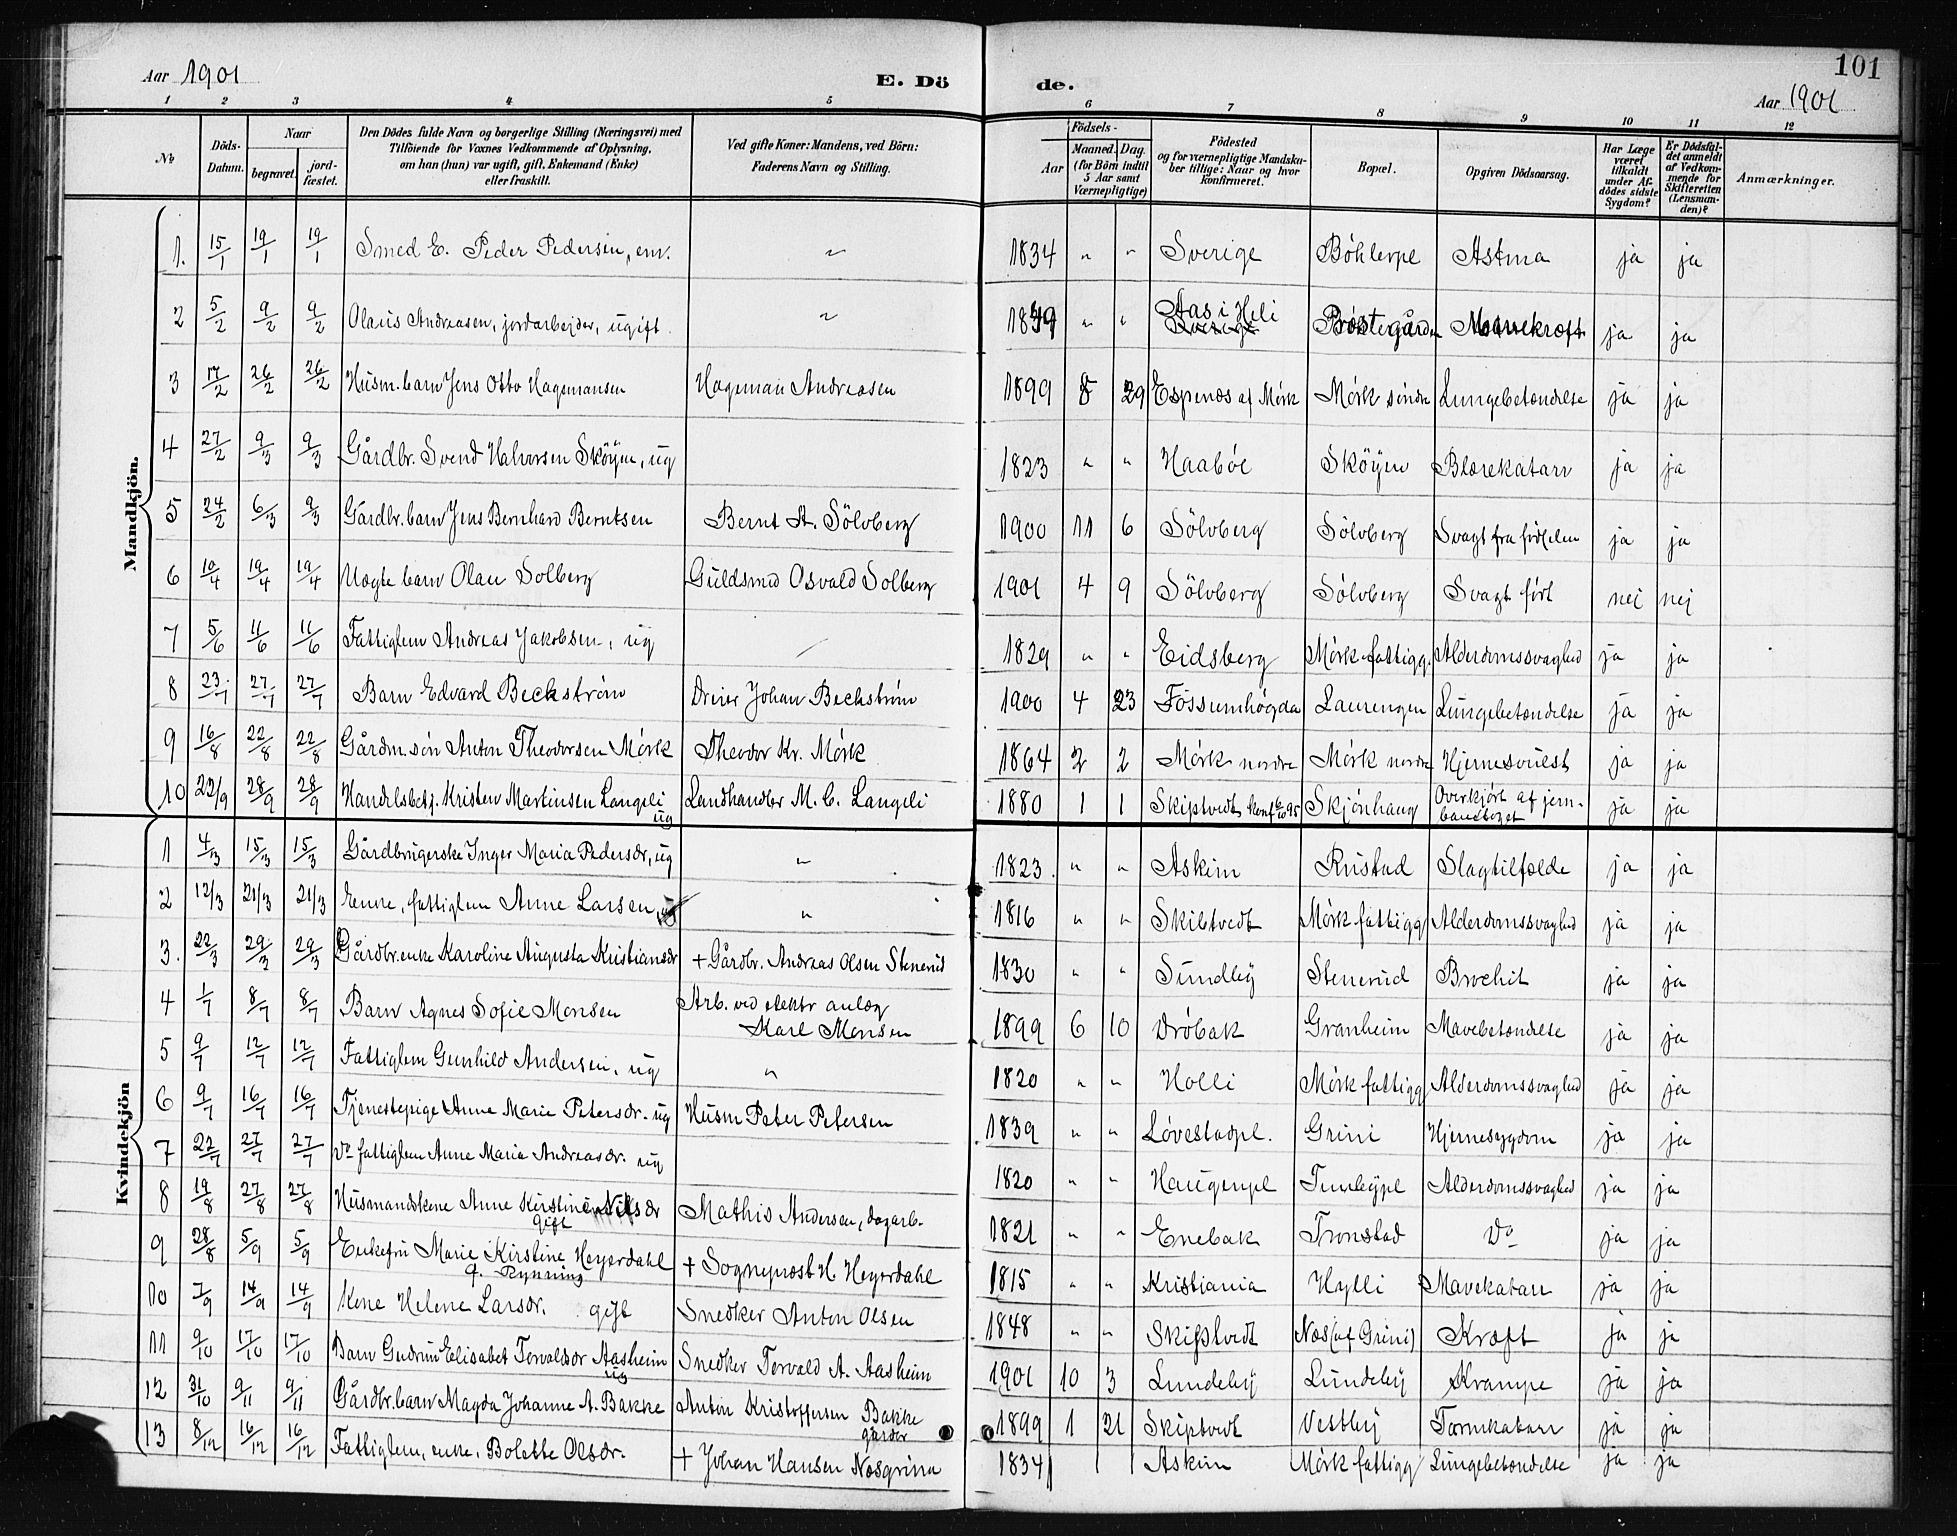 101
Aar 1901
E. Dö de.
Aar 1901
1 2 3 4 5 6 7 8 9 10 11 12
No
Döds-Datum.
Naar begravet. jordfæstet.
Den Dödes fulde Navn og borgerlige Stilling (Næringsvei) med
Tilföiende for Voxnes Vedkommende af Oplysning,
om han (hun) var ugift, gift, Enkemand (Enke)
eller fraskilt.
Ved gifte Koner: Mandens, ved Börn:
Faderens Navn og Stilling.
Födsels-
Aar Maaned. Dag.
(for Börn indtil
5 Aar samt
Værnepligtige)
Födested
og for værnepligtige Mandska-
ber tillige: Naar og hvor
konfirmeret.
Bopæl.
Opgiven Dödsaarsag.
Har Læge
været
tilkaldt
under Af-
dödes sidste
Sygdom?
Er Dödsfal-
det anmeldt
af Vedkom-
mende for
Skifteretten
(Lensman-
den)?
Anmærkninger.
Mandkjön.
1. 15/1 19/1 19/1 Smed E. Peder Pedersen, em. " 1834 " " Sverige Böhlerpl Astma ja ja
2 5/2 9/2 9/2 Olaus Andreasen, jordarbejder, ugift " 1849 " " Aas i Heli Prestegården Mavekræft ja ja
3 17/2 26/2 26/2 Husm. barn Jens Otto Hagemansen Hageman Andreasen 1899 8 29 Espenæs af Mörk Mörk söndre Lungebetændelse ja ja
4 27/2 9/3 9/3 Gårdbr. Svend Halvorsen Sköyen, ug 1823 " " Haaböl Sköyen Blærekatarr ja ja
5 24/2 6/3 9/3 Gårdbr. barn Jens Bernhard Berntsen Bernt A. Sölvberg 1900 11 6 Sölvberg Sölvberg Svagt fra fødselen ja ja
6 10/4 19/4 19/4 Uægte barn Olau Solberg Guldsmed Osvald Solberg 1901 4 9 Sölvberg Sölvberg Svagt fört nej nej
7 5/6 11/6 11/6 Fattiglem Andreas Jakobsen, ug 1829 " " Eidsberg Mörk fattigg. Alderdomssvaghed ja ja
8 23/7 27/7 27/7 Barn Edvard Beckström Dreier Johan Beckström 1900 4 23 Fossumhögda Laurengen Lungebetændelse ja ja
9 16/8 22/8 22/8 Gårdm. sön Anton Theodorsen Mörk Theodor Kr. Mörk 1864 2 2 Mörk nordre Mörk nordre Hjernesvulst ja ja
10 22/9 28/9 28/9 Handelsbetj. Kristen Martinsen Langeli ug Landhandler M. C. Langeli 1880 1 1 Skiptvedt Konf 6/10 95 Skjönhaug Overkjört af jern-
banetoget ja ja
Kvindekjön
1 4/3 15/3 15/3 Gårdbrugerske Inger Maria Pedersdr, ug " 1823 " " Askim Rustad Slagtilfælde ja ja
2 12/3 21/3 21/3 Enke, fattiglem Anne Larsen " 1816 " " Skibtvedt Mörk fattigg Alderdomssvaghed ja ja
3. 22/3 29/3 29/3 Gårdbr. enke Karoline Augusta Kristiansdr + Gårdbr. Andreas Olsen Stenerud 1830 " " Sundby Stenerud Brochit ja ja
4 1/7 8/7 8/7 Barn Agnes Sofie Monsen Arb. ved elektr anlæg
Karl Monsen 1899 6 10 Dröbak Granheim Mavebetændelse ja ja
5 9/7 12/7 12/7 Fattiglem Gunhild Andersen, ug " 1820 " " Holli Mörk fattigg Alderdomssvaghed ja ja
6 9/7 16/7 16/7 Tjenestepige Anne Marie Petersdr. ug Husm Peter Petersen 1839 " " Lövestadpl. Grini Hjernesygdom ja ja
7 22/7 27/7 27/7 Do fattiglem Anne Maria Andreasdr. ug 1820 " " Haugenpl Tunbypl Alderdomssvaghed ja ja
8 19/8 27/8 27/8 Husmandskone Anne Kirstine Nilsdr
gift Mathis Andersen, dagarb. 1821 " " Enebak Tronstad Do ja ja
9 28/8 5/9 5/9 Enkefru Marie Kirstine Heyerdahl
f. Rynning + Sogneprest H. Heyerdahl 1815 " " Kristiania Hylli Mavekatarr ja ja
10 7/9 14/9 14/9 Kone Helene Larsdr. gift Snedker Anton Olsen 1848 " " Skiptvedt Næs (af Grini) Kræft ja ja
11 9/10 17/10 17/10 Barn Gudrun Elisabet Torvaldsdr Aasheim
ug Snedker Torvald A. Aasheim 1901 10 3 Lundeby Lundeby Krampe ja ja
12 31/10 9/11 9/11 Gårdbr. barn Magda Johanne A. Bakke Anton Kristoffersen Bakke 1899 1 21 Skiptvedt Vestby Tarmkatarr ja ja
13 8/12 16/12 16/12 Fattiglem, enke, Bolette Olsdr. + Johan Hansen Næsgrina 1834 Askim Mörk fattigg Lungebetændelse ja ja